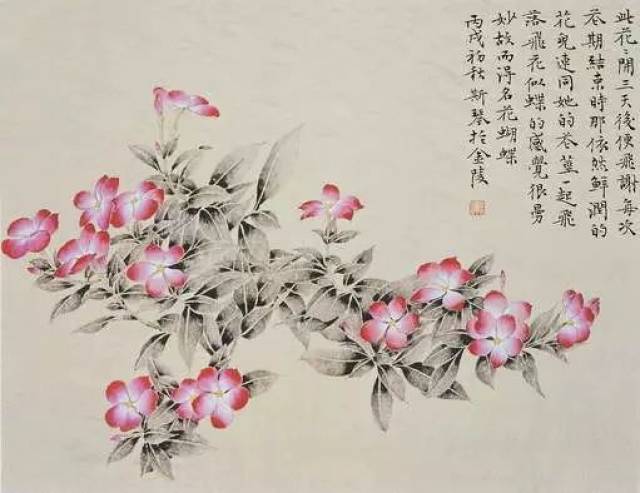 此花花開三天後便飛謝每次
花期結束時那依然鮮潤的
花兒連同她的花莖一起飛
落飛花似蝶的感覺很曼
妙故而得名花蝴蝶
丙戌初秋斯琴於金陵